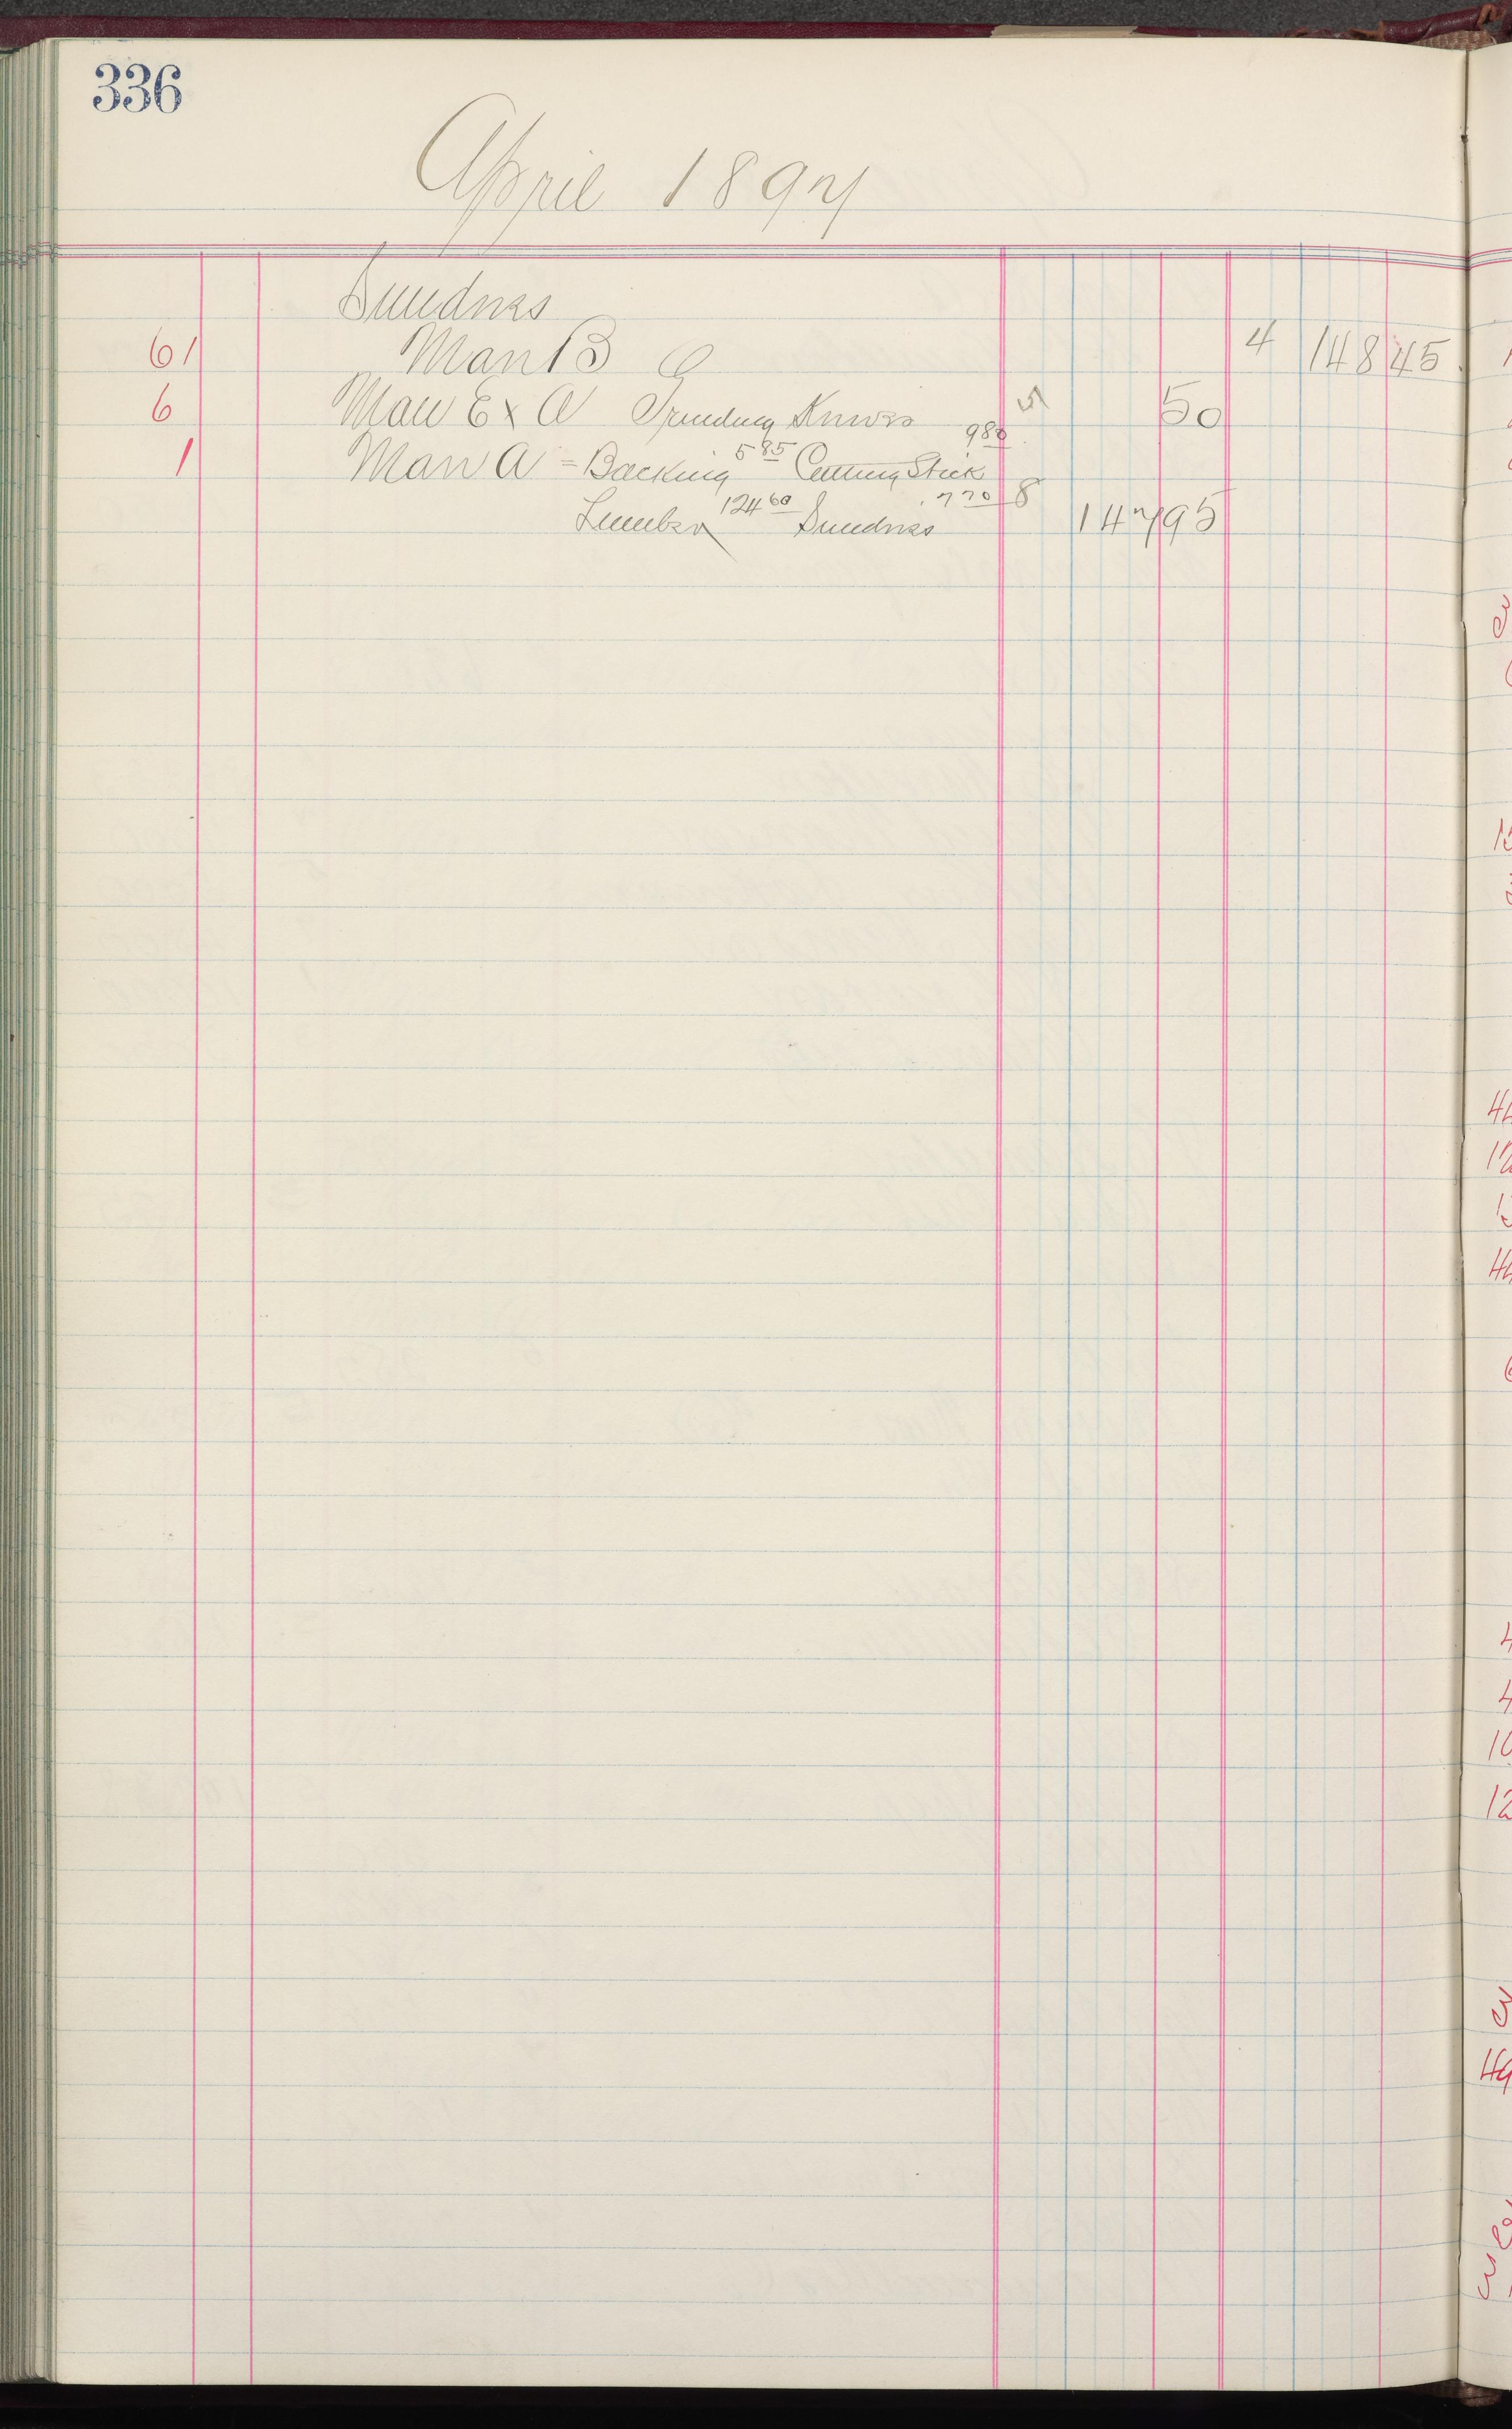 336
April 1897
Sundries
61 Man B 4 148 45
6 Man Ex A Grinding Knives 5 50
1 Man A = Backing 5 85 Cutting Stick 9 80
Lumber 124 60 Sundries 7 70 8 147 95